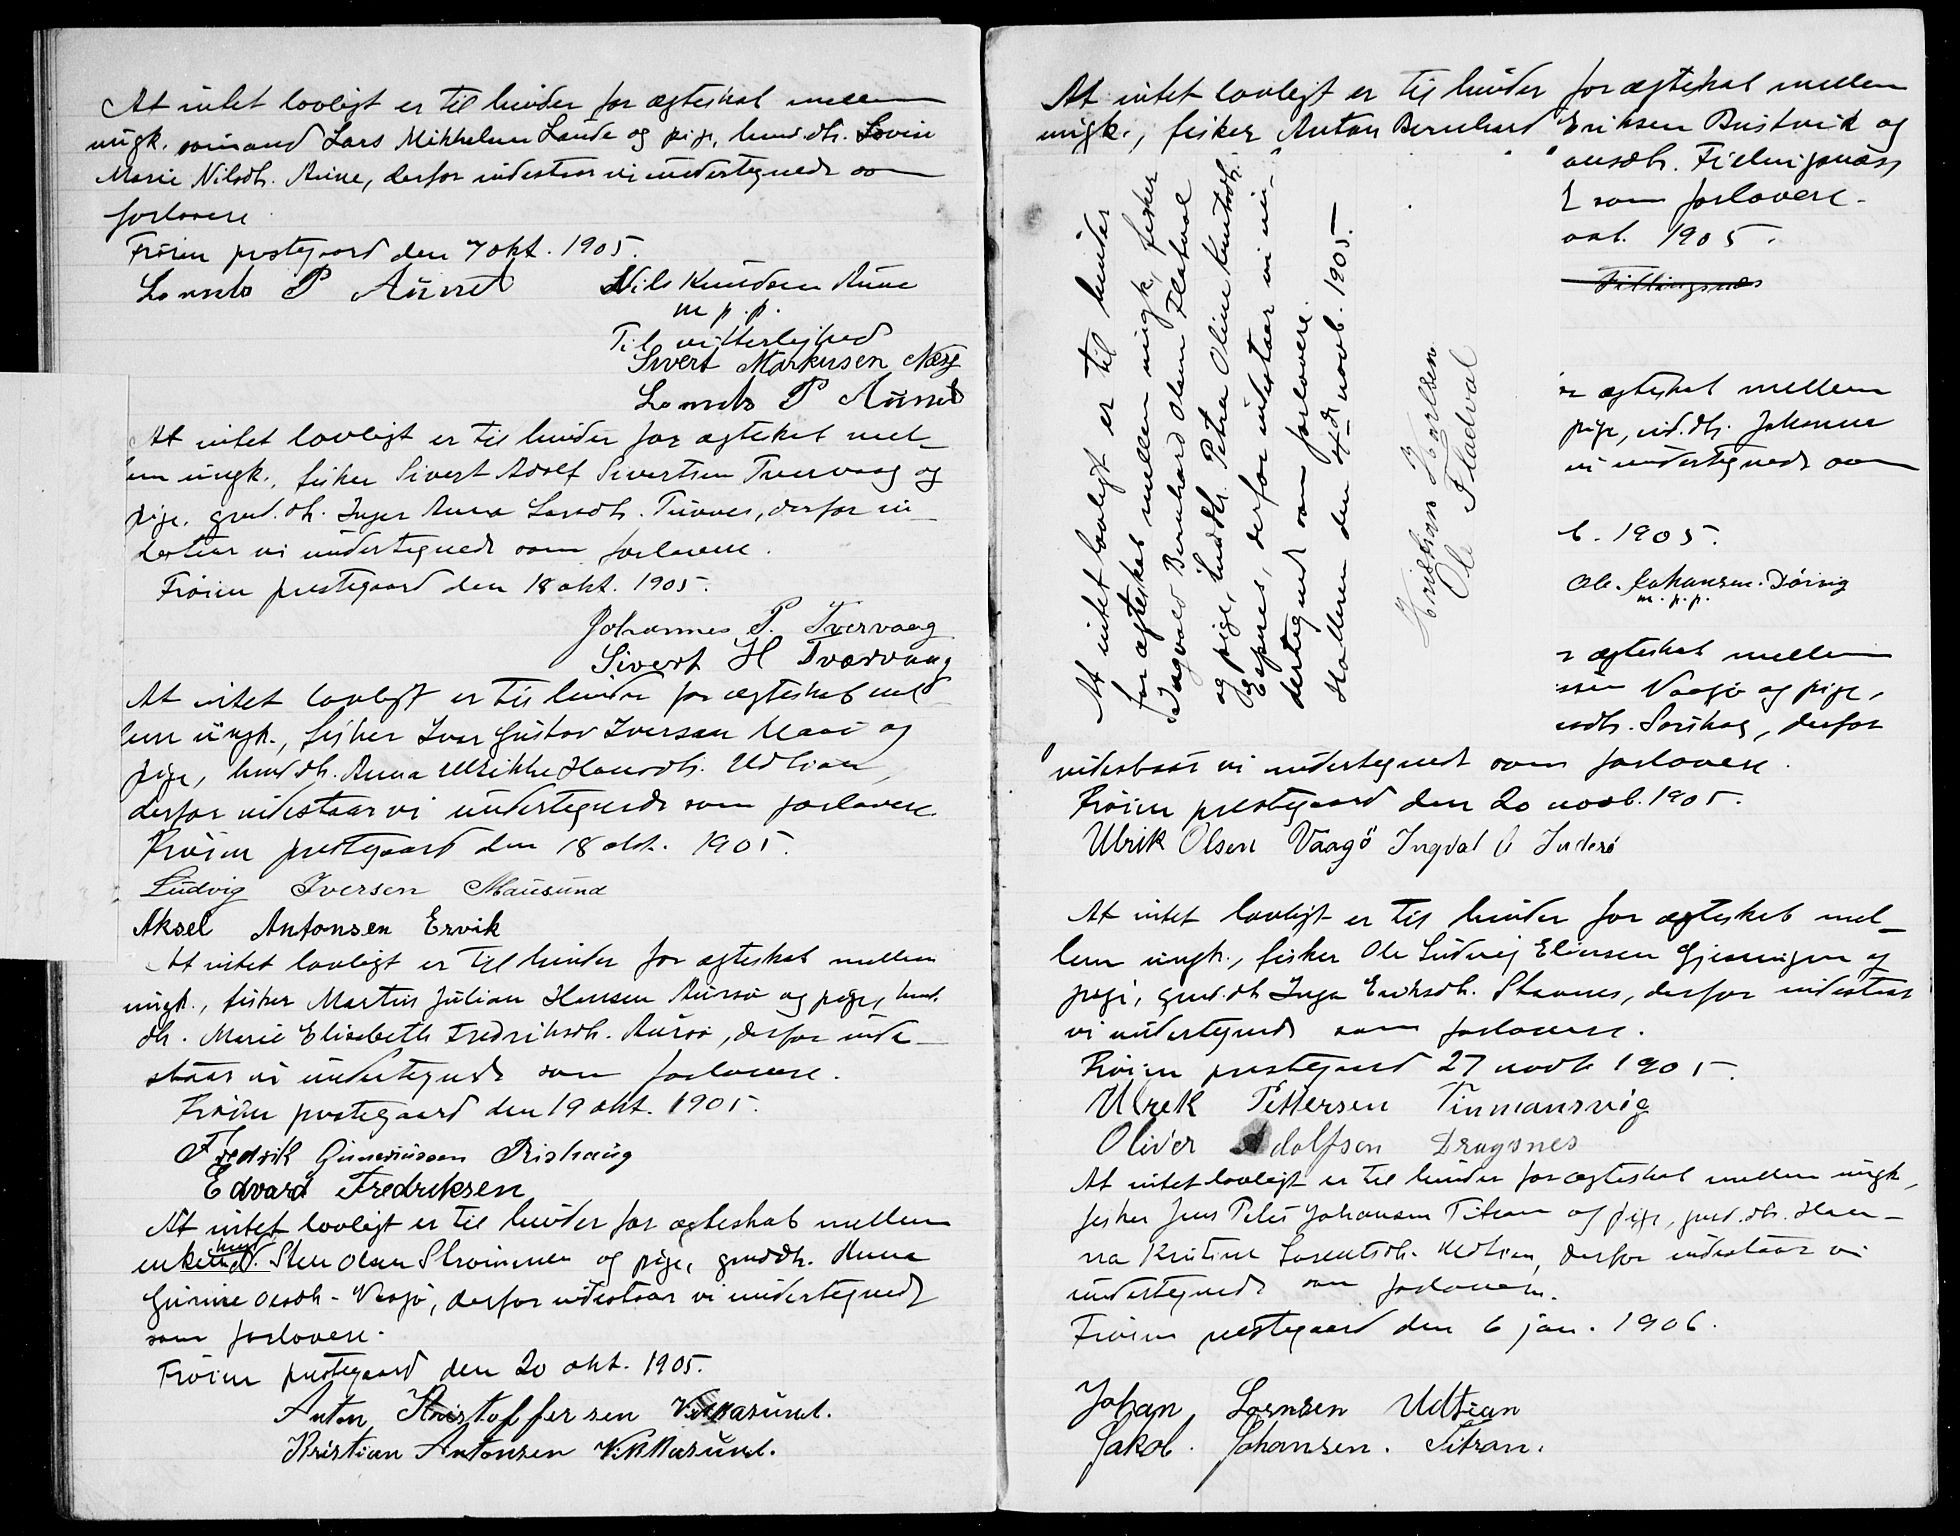 At intet lovligt er til hinder for ægteskab mellem
ungk. sømand Lars Mikkelsen Lande og pige, husm.dtr. Lovise
Marie Nilsdtr. Aune, derfor indestaar vi undertegnede som
forlovere.
Frøien prestegaard den 7 okt. 1905.
Lornts P Aunet
Nils Knudsen Aune
m p.p.
Til vitterlighed
Sivert Markusen Næss
Lornts P Aunet
At intet lovligt er til hinder for ægteskab mel-
lem ungk., fisker Sivert Adolf Sivertsen Tvervaag og
pige, grmd.dtr. Inger Anna Larsdtr. , derfor in-
destaar vi undertegnede som forlovere.
Frøien prestegaard den 18 okt. 1905.
Johannes P. Tvervaag
Sivert H Tværvaag
At intet lovligt er til hinder for ægteskab mel-
lem ungk., fisker Ivar Gustav Iversen og
pige, husm.dtr. Anna Ulrikke Hansdtr. Udtian,
derfor indestaar vi undertegnede som forlovere.
Frøien prestegaard den 18 okt. 1905.
Ludvig Iversen Mausund
Aksel Antonsen Ervik
At intet lovligt er til hinder for ægteskab mellem
ungk., fisker Martin Julian Hansen Aursø og pige, husm.
dtr. Marie Elisabeth Fredriksdtr. Aursø, derfor inde-
staar vi undertegnede som forlovere.
Frøien prestegaard den 19 okt. 1905.
Fredrik Guneriussen Rishaug
Edvard Fredriksen
At intet lovligt er til hinder for ægteskab mellem
enkem. husm. Sten Olsen Strømmen og pige, grmd.dtr. Anna
Gurine Olsdtr. Vaagø, derfor indestaar vi undertegnede
som forlovere.
Frøien prestegaard den 20 okt. 1905.
Anton Kristoffersen Vikkasund.
Kristian Antonsen Vikkasund.
At intet lovligt er til hinder for ægteskab mellem
ungk., fisker Anton Bernhard Eriksen Bustvik og
ansdtr. Fillingsnæss
som forlovere.
1905.
Fillingsnæs
At intet lovligt er til hinder
for ægteskab mellem ungk, fisker
Ingvald Bernhard Olsen Fladval
og pige, husm.dtr. Petra Oline Knutsdtr.
Espnes, derfor indestaar vi un-
dertegned som forlovere.
Holleren den 4de novb. 1905.
Kristian Karlsen
Ole Fladval
ægteskab mellem
pige, ind.dtr. Johanne
vi undertegnede som
b. 1905.
Ole. Johansen. Dørvig
m. p.p.
ægteskab mellem
Vaagø og pige,
derfor
indestaar vi undertegnede som forlovere.
Frøien prestegaard den 20 novb. 1905.
Ulrik Olsen Vaagö Ingval O Inderø
At intet lovligt er til hinder for ægteskab mel-
lem ungk., fisker Ole Ludvig Eliasen Gjessingen og
pige, grmd.dtr. Inga Eriksdtr. Stavnes, derfor indestaar
vi undertegnede som forlovere.
Frøien prestegaard 27 novb 1905.
Ulrek Pettersen Tinmansvig
Oliver Adolfsen Dragsnes
At intet lovligt er til hinder for ægteskab mellem ungk,
fisker Jens Peter Johansen Titran og pige, grmd.dtr. Han-
na Kristine Lorentsdtr. Udtian, derfor indestaar vi
undertegnede som forlovere.
Frøien prestegaard den 6 jan. 1906.
Johan Lornsen Udtian
Jakob. Johansen. Titran.